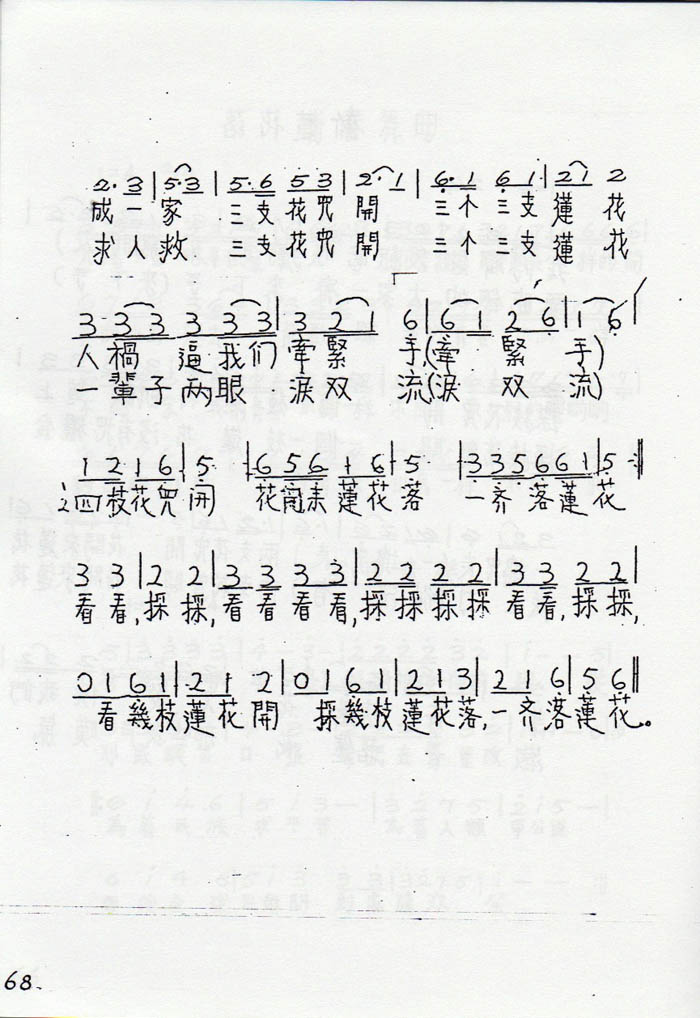 2· 3 | 5·3 | 5·6 5 3 | 2·1 | 6·1 6 1 | 2 1 2
成一家 三支花児開 三个三支蓮花
求人救 三支花児開 三个三支蓮花
3 3 3 3 3 3 | 3 2 1 6 | 6 1 2 6 | 1 6 |
人禍逼我们牽緊手,(牽緊手)
一輩子两眼淚双流(淚双流)
1 2 1 6 | 5 6 5 6 1 6 | 5 3 3 5 6 6 1 | 5 :||
四枝花児開 花開来蓮花落 一齐落蓮花
3 3 | 2 2 | 3 3 3 3 | 2 2 2 2 | 3 3 2 2 |
看看,採採,看看看看,採採採採看看,採採,
0 1 6 1 | 2 1 2 | 0 1 6 1 | 2 1 3 | 2 1 6 | 5 6 ||
看幾枝蓮花開 採幾枝蓮花落,一齐落蓮花。
68